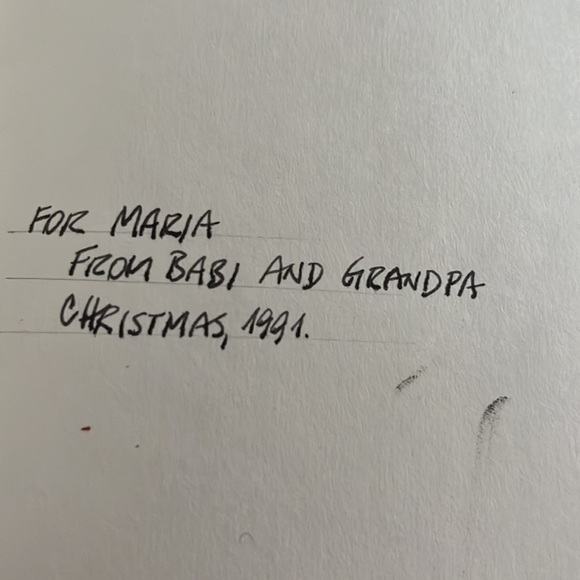 FOR MARIA
FROM BABI AND GRANDPA
CHRISTMAS, 1991.